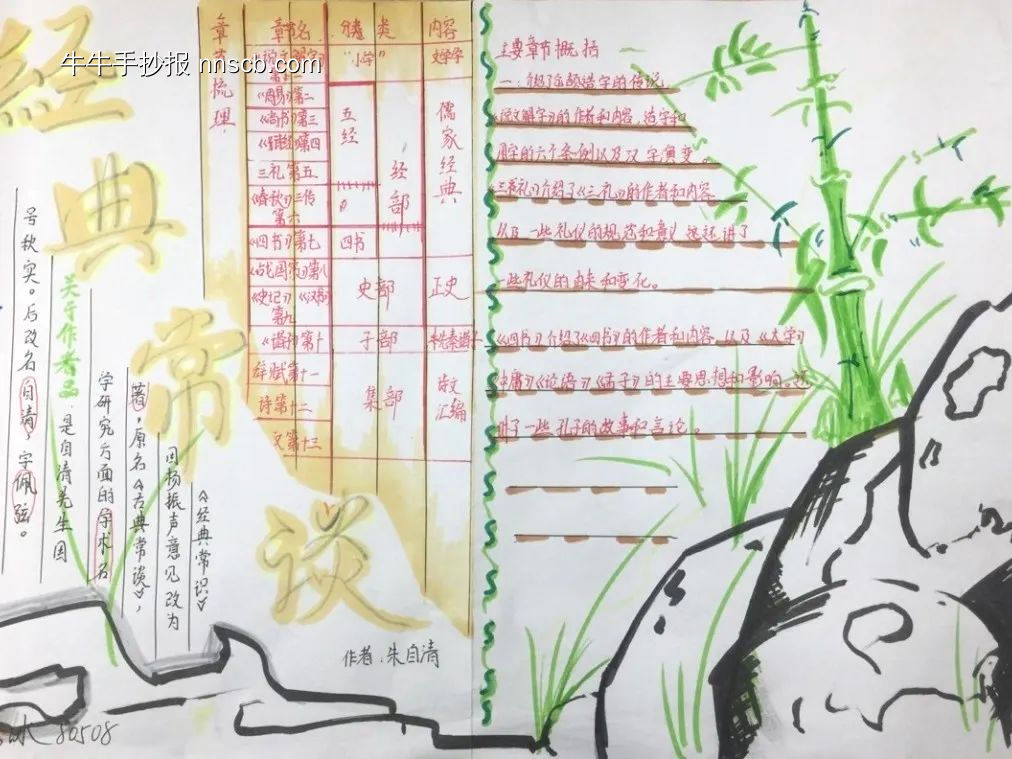 牛牛手抄报 nnscb.com
经
典
常
谈
号秋实。后改名自清，字佩弦。
关于作者品
是自清先生因
学研究方面的学术名
著，原名《古典常谈》，
因杨振声意见改为
《经典常识》
作者：朱自清
80508
章节梳理
章节名 分类 类 内容
《说文解字》第一 “小学” 文字学
《周易》第二
《尚书》第三
《诗经》第四
三礼第五
《春秋》三传第六
五经
经部
儒家经典
《四书》第七 四书
《战国策》第八
《史记》《汉书》第九
史部 正史
《诸子》第十 子部 先秦诸子
辞赋第十一
诗第十二
文第十三
集部 散文汇编
主要章节概括
一、介绍了仓颉造字的传说，
《说文解字》的作者和内容，造字和
用字的六个条例以及汉字演变。
《三礼》介绍了《三礼》的作者和内容
以及一些礼仪的规范和意义 还讲了
一些礼仪的由来和变化。
《四书》介绍了《四书》的作者和内容，以及《大学》
《中庸》《论语》《孟子》的主要思想和影响。还
讲了一些孔子的故事和言论。